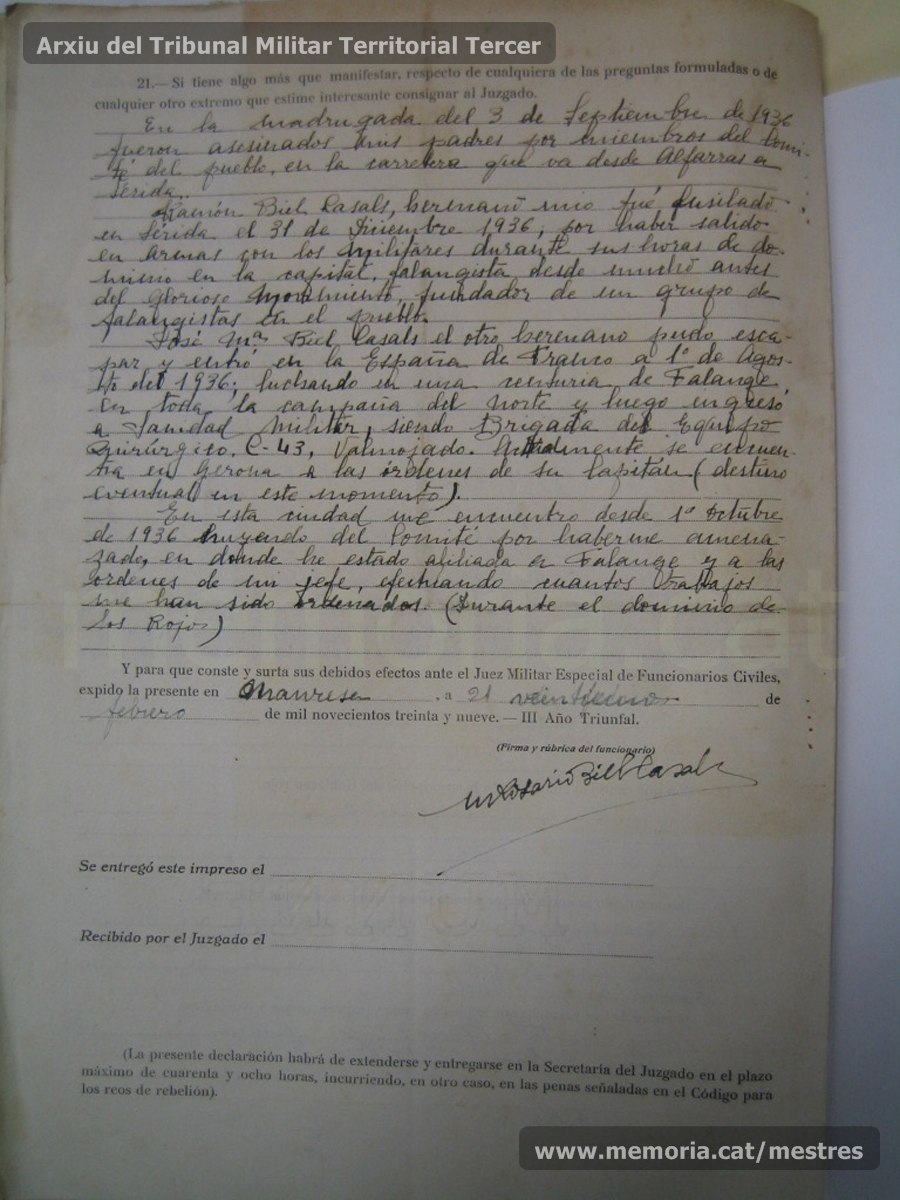 Arxiu del Tribunal Militar Territorial Tercer
21.— Si tiene algo más que manifestar, respecto de cualquiera de las preguntas formuladas o de
cualquier otro extremo que estime interesante consignar al Juzgado.
En la madrugada del 3 de Septiembre de 1936
fueron asesinados mis padres por miembros del Comi-
té del pueblo, en la carretera que va desde Alfarras a
Lérida.
Ramón Biel Casals, hermano mio fué fusilado
en Lérida el 31 de Diciembre 1936, por haber salido
en armas con los militares durante sus horas de do-
minio en la capital, falangista desde mucho antes
del Glorioso Movimiento, fundador de un grupo de
falangistas en el pueblo.
José Mª Biel Casals el otro hermano pudo esca-
par y entró en la España de Franco a 1º de Agos-
to del 1936; luchando en una centuria de Falange
en toda la campaña del norte y luego ingresó
a Sanidad Militar, siendo Brigada del Equipo
Quirúrgico. C-43, Valmojado. Actualmente se encuen-
tra en Gerona a las ordenes de su Capitan (destino
eventual en este momento).
En esta ciudad me encuentro desde 1º Octubre
de 1936 huyendo del Comité por haberme amena-
zado, en donde he estado afiliada a Falange y a las
ordenes de un jefe, efectuando cuantos trabajos
me han sido ordenados. (Durante el dominio de
los Rojos)
Y para que conste y surta sus debidos efectos ante el Juez Militar Especial de Funcionarios Civiles,
expido la presente en Manresa, a 21 veintiuno de
febrero de mil novecientos treinta y nueve. — III Año Triunfal.
(Firma y rúbrica del funcionario)
Mª Rosario Biel Casals
Se entregó este impreso el
Recibido por el Juzgado el
(La presente declaración habrá de extenderse y entregarse en la Secretaría del Juzgado en el plazo
máximo de cuarenta y ocho horas, incurriendo, en otro caso, en las penas señaladas en el Código para
los reos de rebelión).
www.memoria.cat/mestres